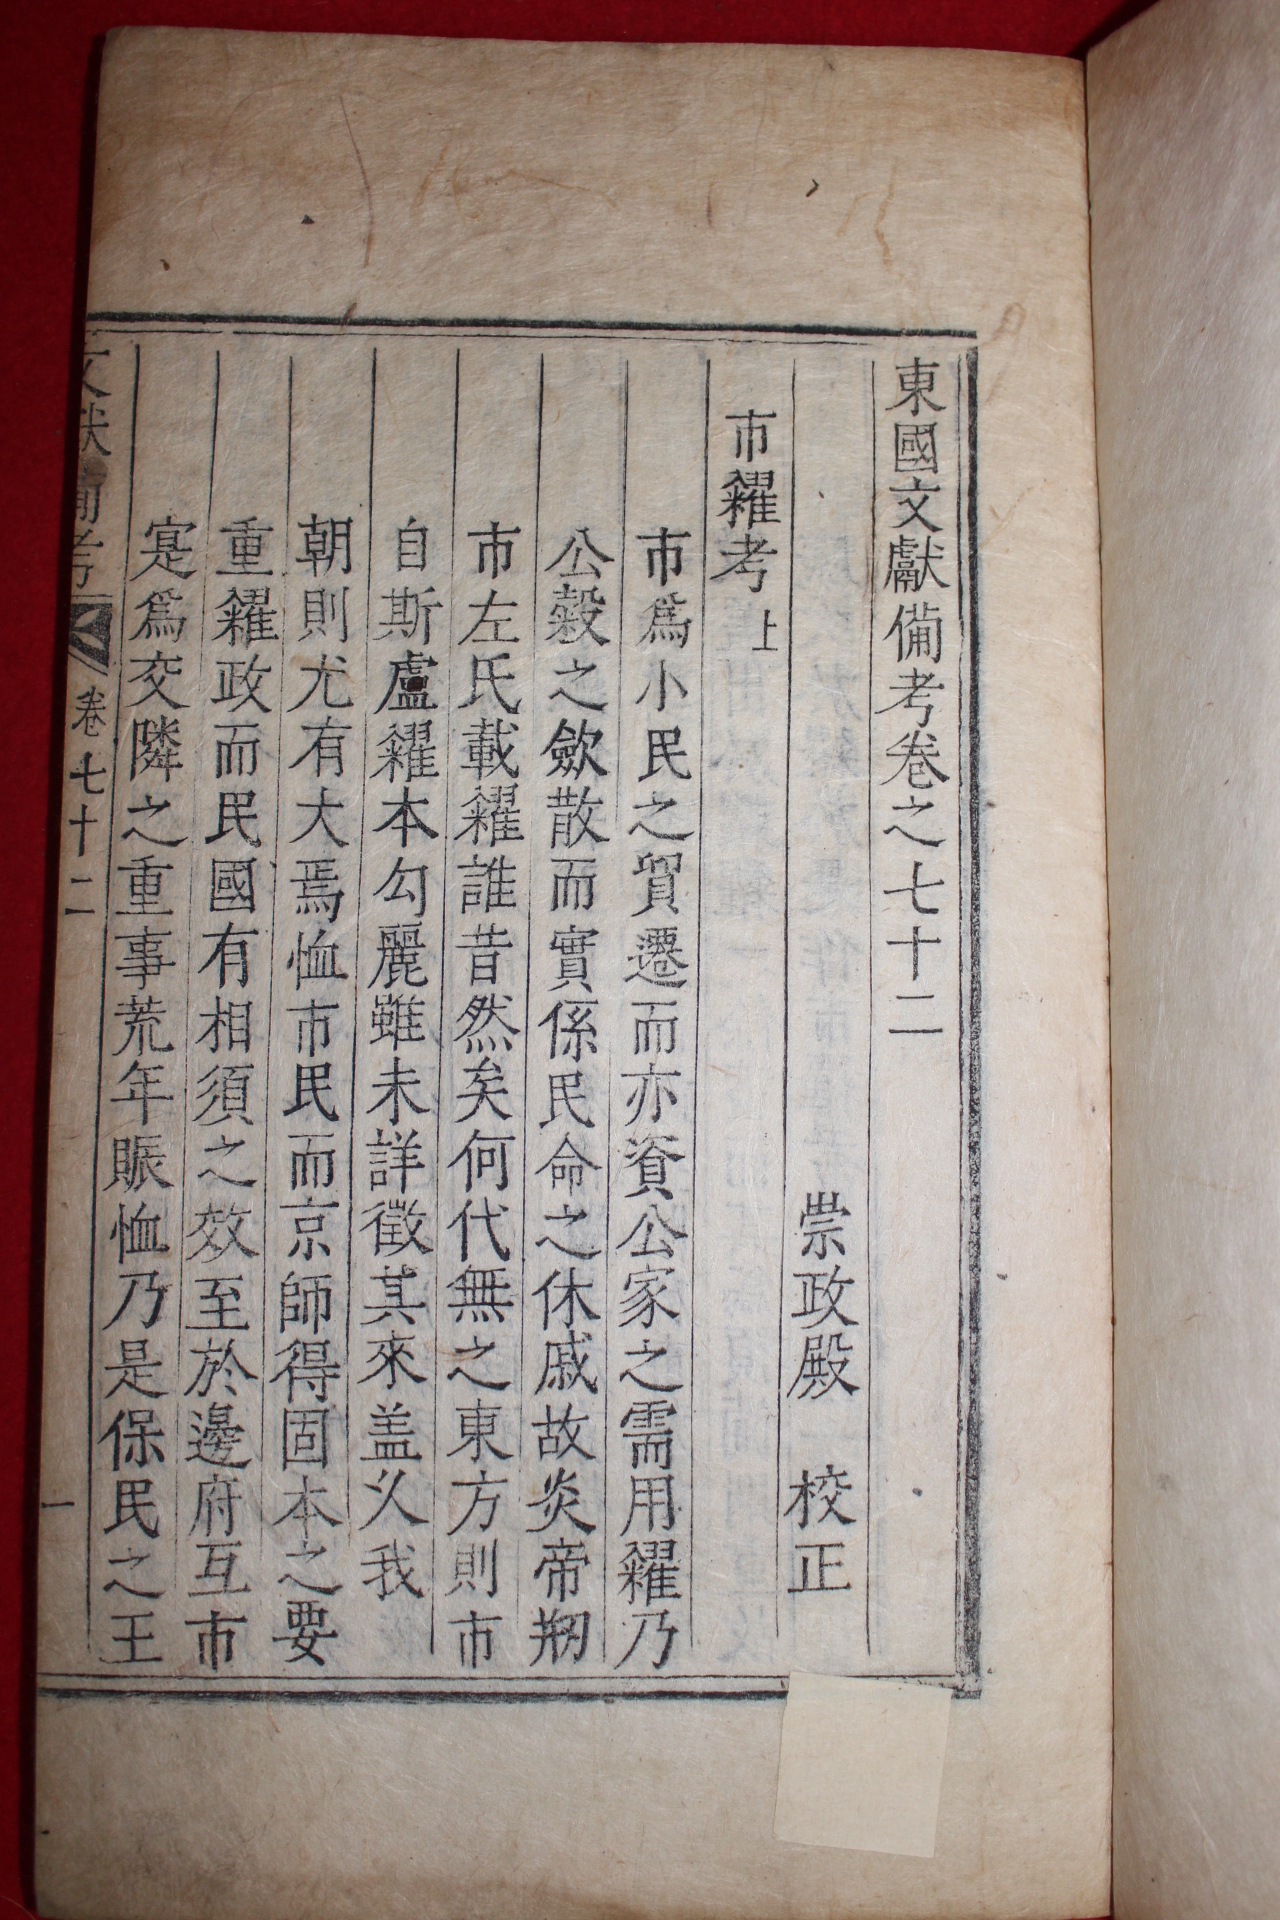 東國文獻備考卷之七十二
崇政殿 校正
市糴考 上
市爲小民之貿遷而亦資公家之需用糴乃
公穀之斂散而實係民命之休戚故炎帝刱
市左氏載糴誰昔然矣何代無之東方則市
自斯盧糴本勾麗雖未詳徵其來盖乆我
朝則尤有大焉恤市民而京師得固本之要
重糴政而民國有相須之效至於邊府互市
寔爲交隣之重事荒年賑恤乃是保民之王
文獻備考 卷七十二 一